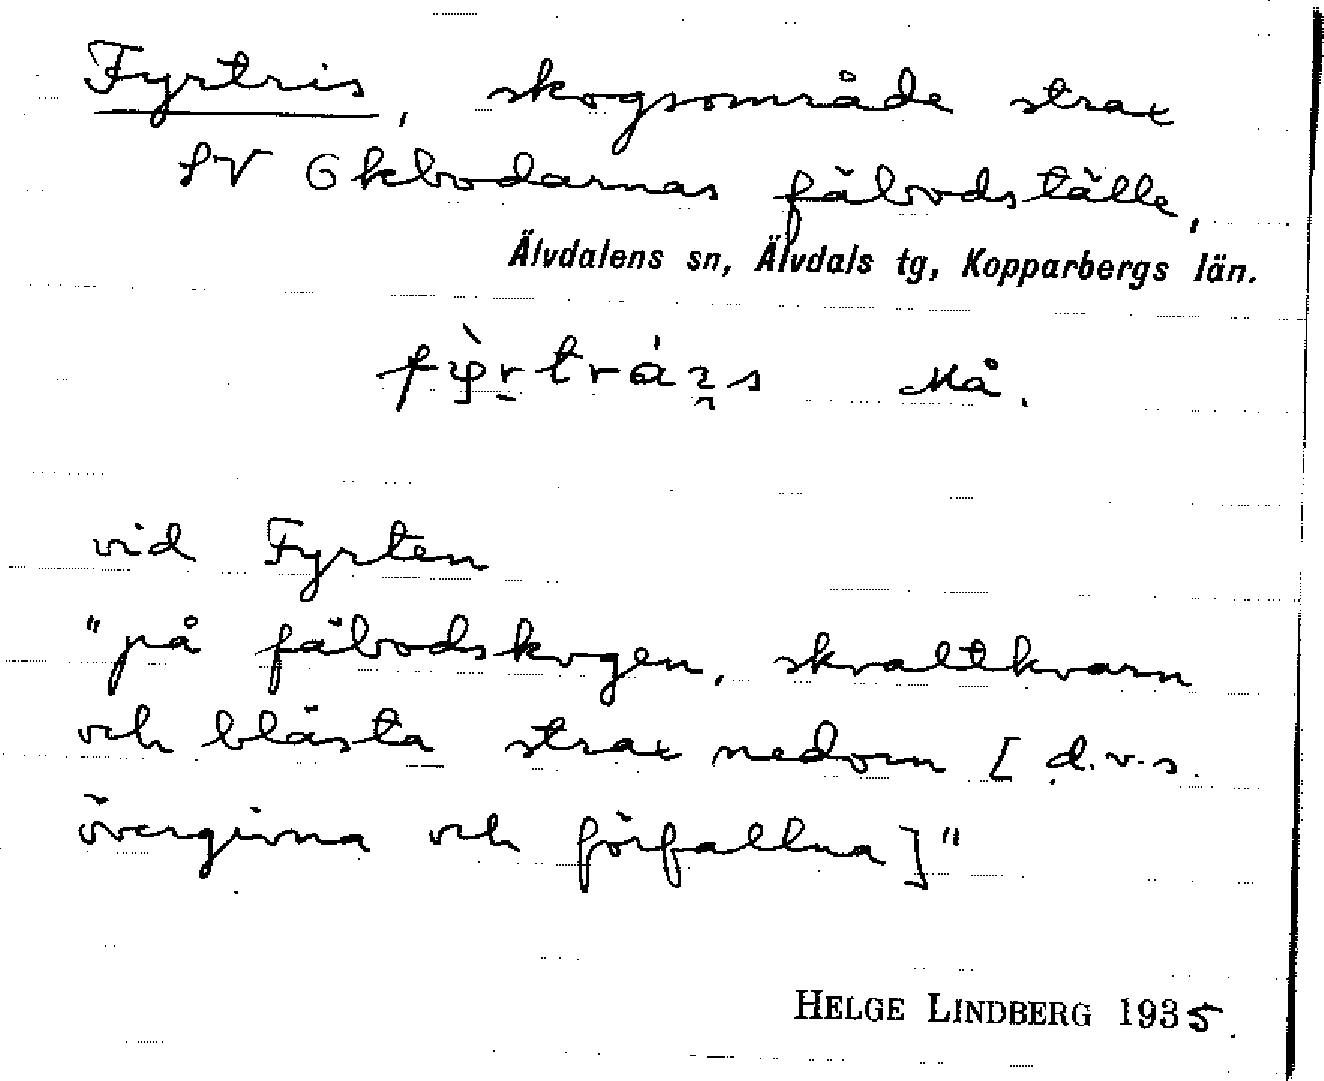 Fyrtris, skogsområde strax
SV Ekbodarnas fäbodställe,
Älvdalens sn, Älvdals tg, Kopparbergs län.
Må.
vid Fyrten
"på fäbodskogen, skvaltkvarn
och blästa strax nedom [d.v.s.
övergivna och förfallna]"
HELGE LINDBERG 1935